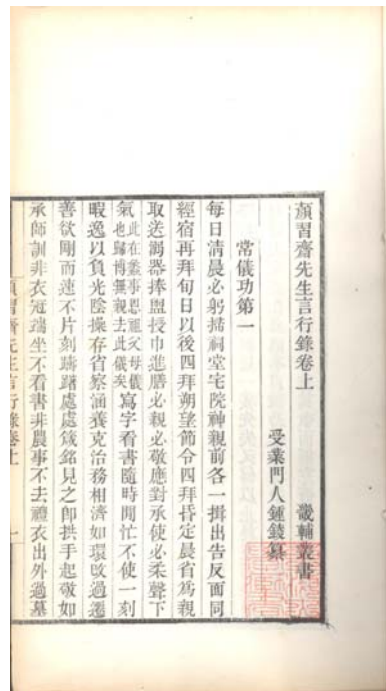 顏習齋先生言行錄卷上
畿輔叢書
受業門人鍾錂纂
常儀功第一
每日清晨必躬掃祠堂宅院神親前各一揖出告反面同
經宿再拜旬日以後四拜朔望節令四拜昏定晨省為親
取送溺器捧盥授巾進膳必親必敬應對承使必柔聲下
氣此在蠡事恩祖父母儀也歸博無親去此儀矣寫字看書隨時閒忙不使一刻
暇逸以負光陰操存省察涵養克治務相濟如環改過遷
善欲剛而速不片刻躊躇處處箴銘見之卽拱手起敬如
承師訓非衣冠端坐不看書非農事不去禮衣出外過墓
顏習齋先生言行錄卷上
一